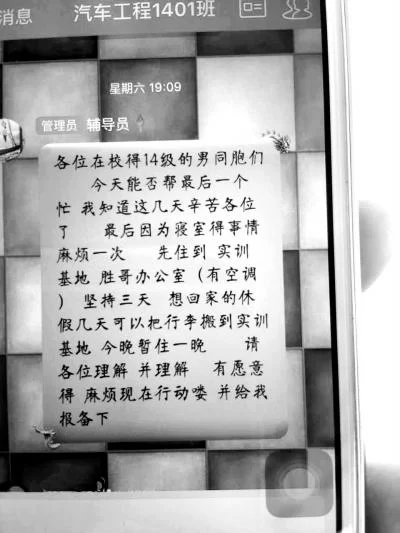 消息
汽车工程1401班
星期六 19:09
管理员 辅导员
各位在校得14级的男同胞们
今天能否帮最后一个
忙 我知道这几天辛苦各位
了 最后因为寝室得事情
麻烦一次 先住到 实训
基地 胜哥办公室 (有空调
) 坚持三天 想回家的休
假几天可以把行李搬到实训
基地 今晚暂住一晚 请
各位理解 并理解 有愿意
得 麻烦现在行动喽 并给我
报备下